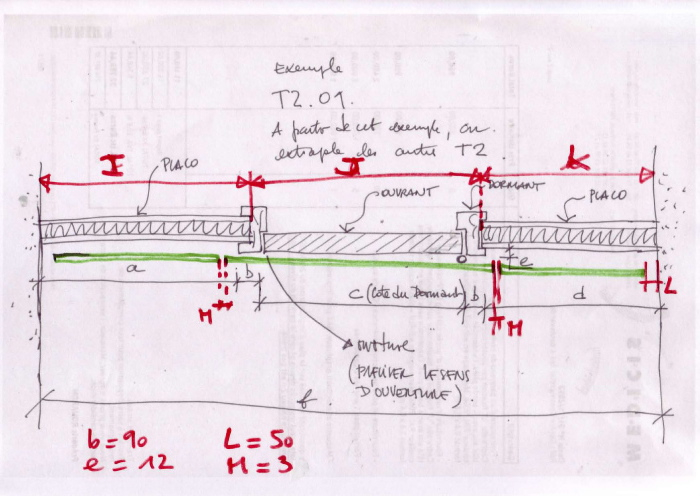 Exemple
T2.01.
A partir de cet exemple, on
extrapole les autres T2
I
J
K
PLACO
OUVRANT
DORMANT
PLACO
a
b
c (cote du Dormant)
b
e
d
L
M
M
ouverture
(PRECISER LE SENS
D'OUVERTURE).
f
b = 90
L = 50
e = 12
M = 3